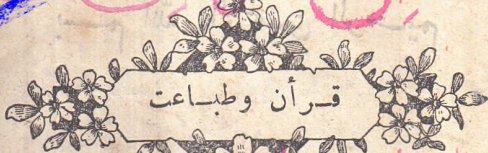 قـرأن وطبـاعت